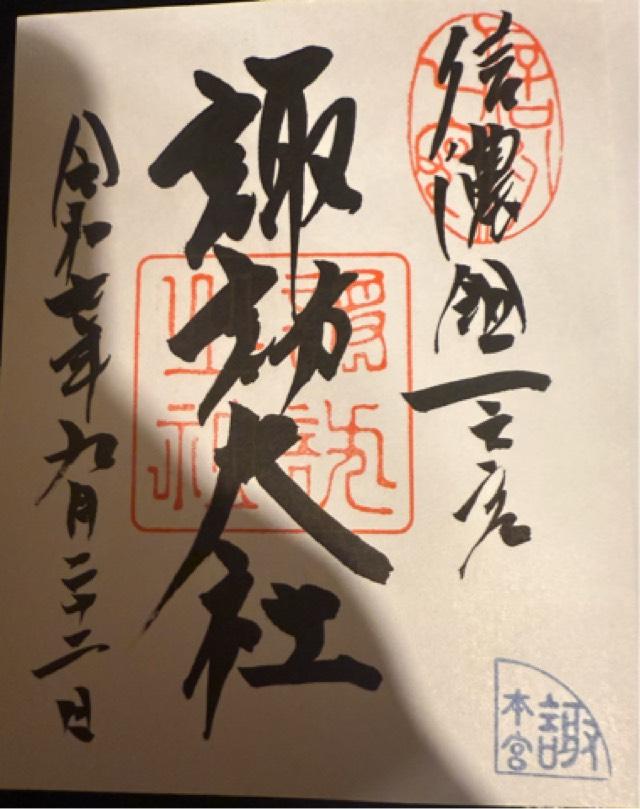 信濃國一之宮
諏訪大社
令和七年九月二十二日
諏
本宮